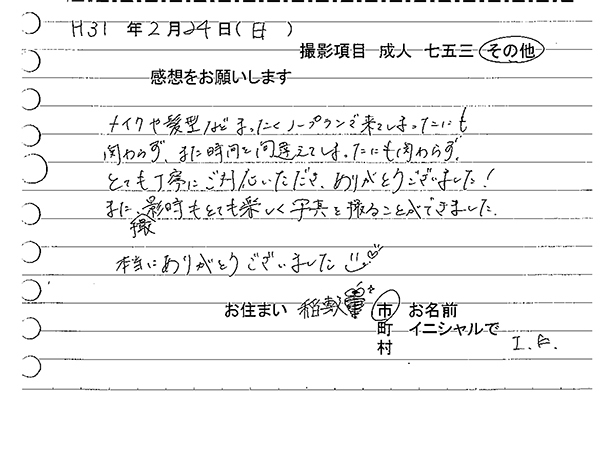 H31 年 2 月 24 日 ( 日 )
撮影項目 成人 七五三 その他
感想をお願いします
メイクや髪型などまったくノープランで来てしまったにも
関わらず、また時間を間違えてしまったにも関わらず、
とても丁寧にご対応いただき、ありがとうございました!
また、撮影時もとても楽しく写真を撮ることができました。
本当にありがとうございました
お住まい 稲敷 市 お名前
町 イニシャルで
村 I.